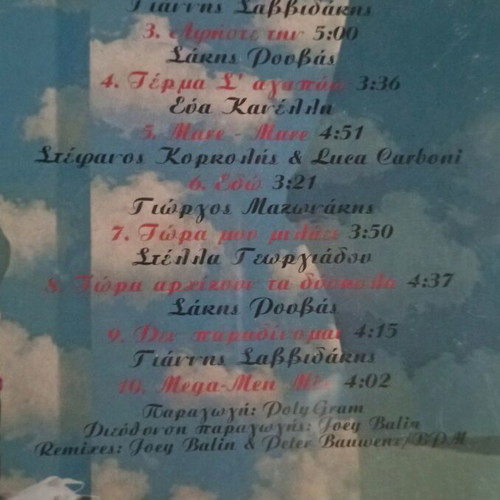 Γιάννης Σαββιδάκης
3. Αφήστε την 5:00
Σάκης Ρουβάς
4. Τέρμα Σ' αγαπώ 3:36
Εύα Κανέλλη
5. Mare - Mare 4:51
Στέφανος Κορκολής & Luca Carboni
6. Εδώ 3:21
Γιώργος Μαζωνάκης
7. Τώρα μου μιλάς 3:50
Στέλλα Γεωργιάδου
8. Τώρα αρχίζουν τα δύσκολα 4:37
Σάκης Ρουβάς
9. Δεν παραδίνομαι 4:15
Γιάννης Σαββιδάκης
10. Mega-Men Mix 4:02
Παραγωγή: PolyGram
Διεύθυνση παραγωγής: Joey Balin
Remixes: Joey Balin & Peter Bauwenz/B.P.M